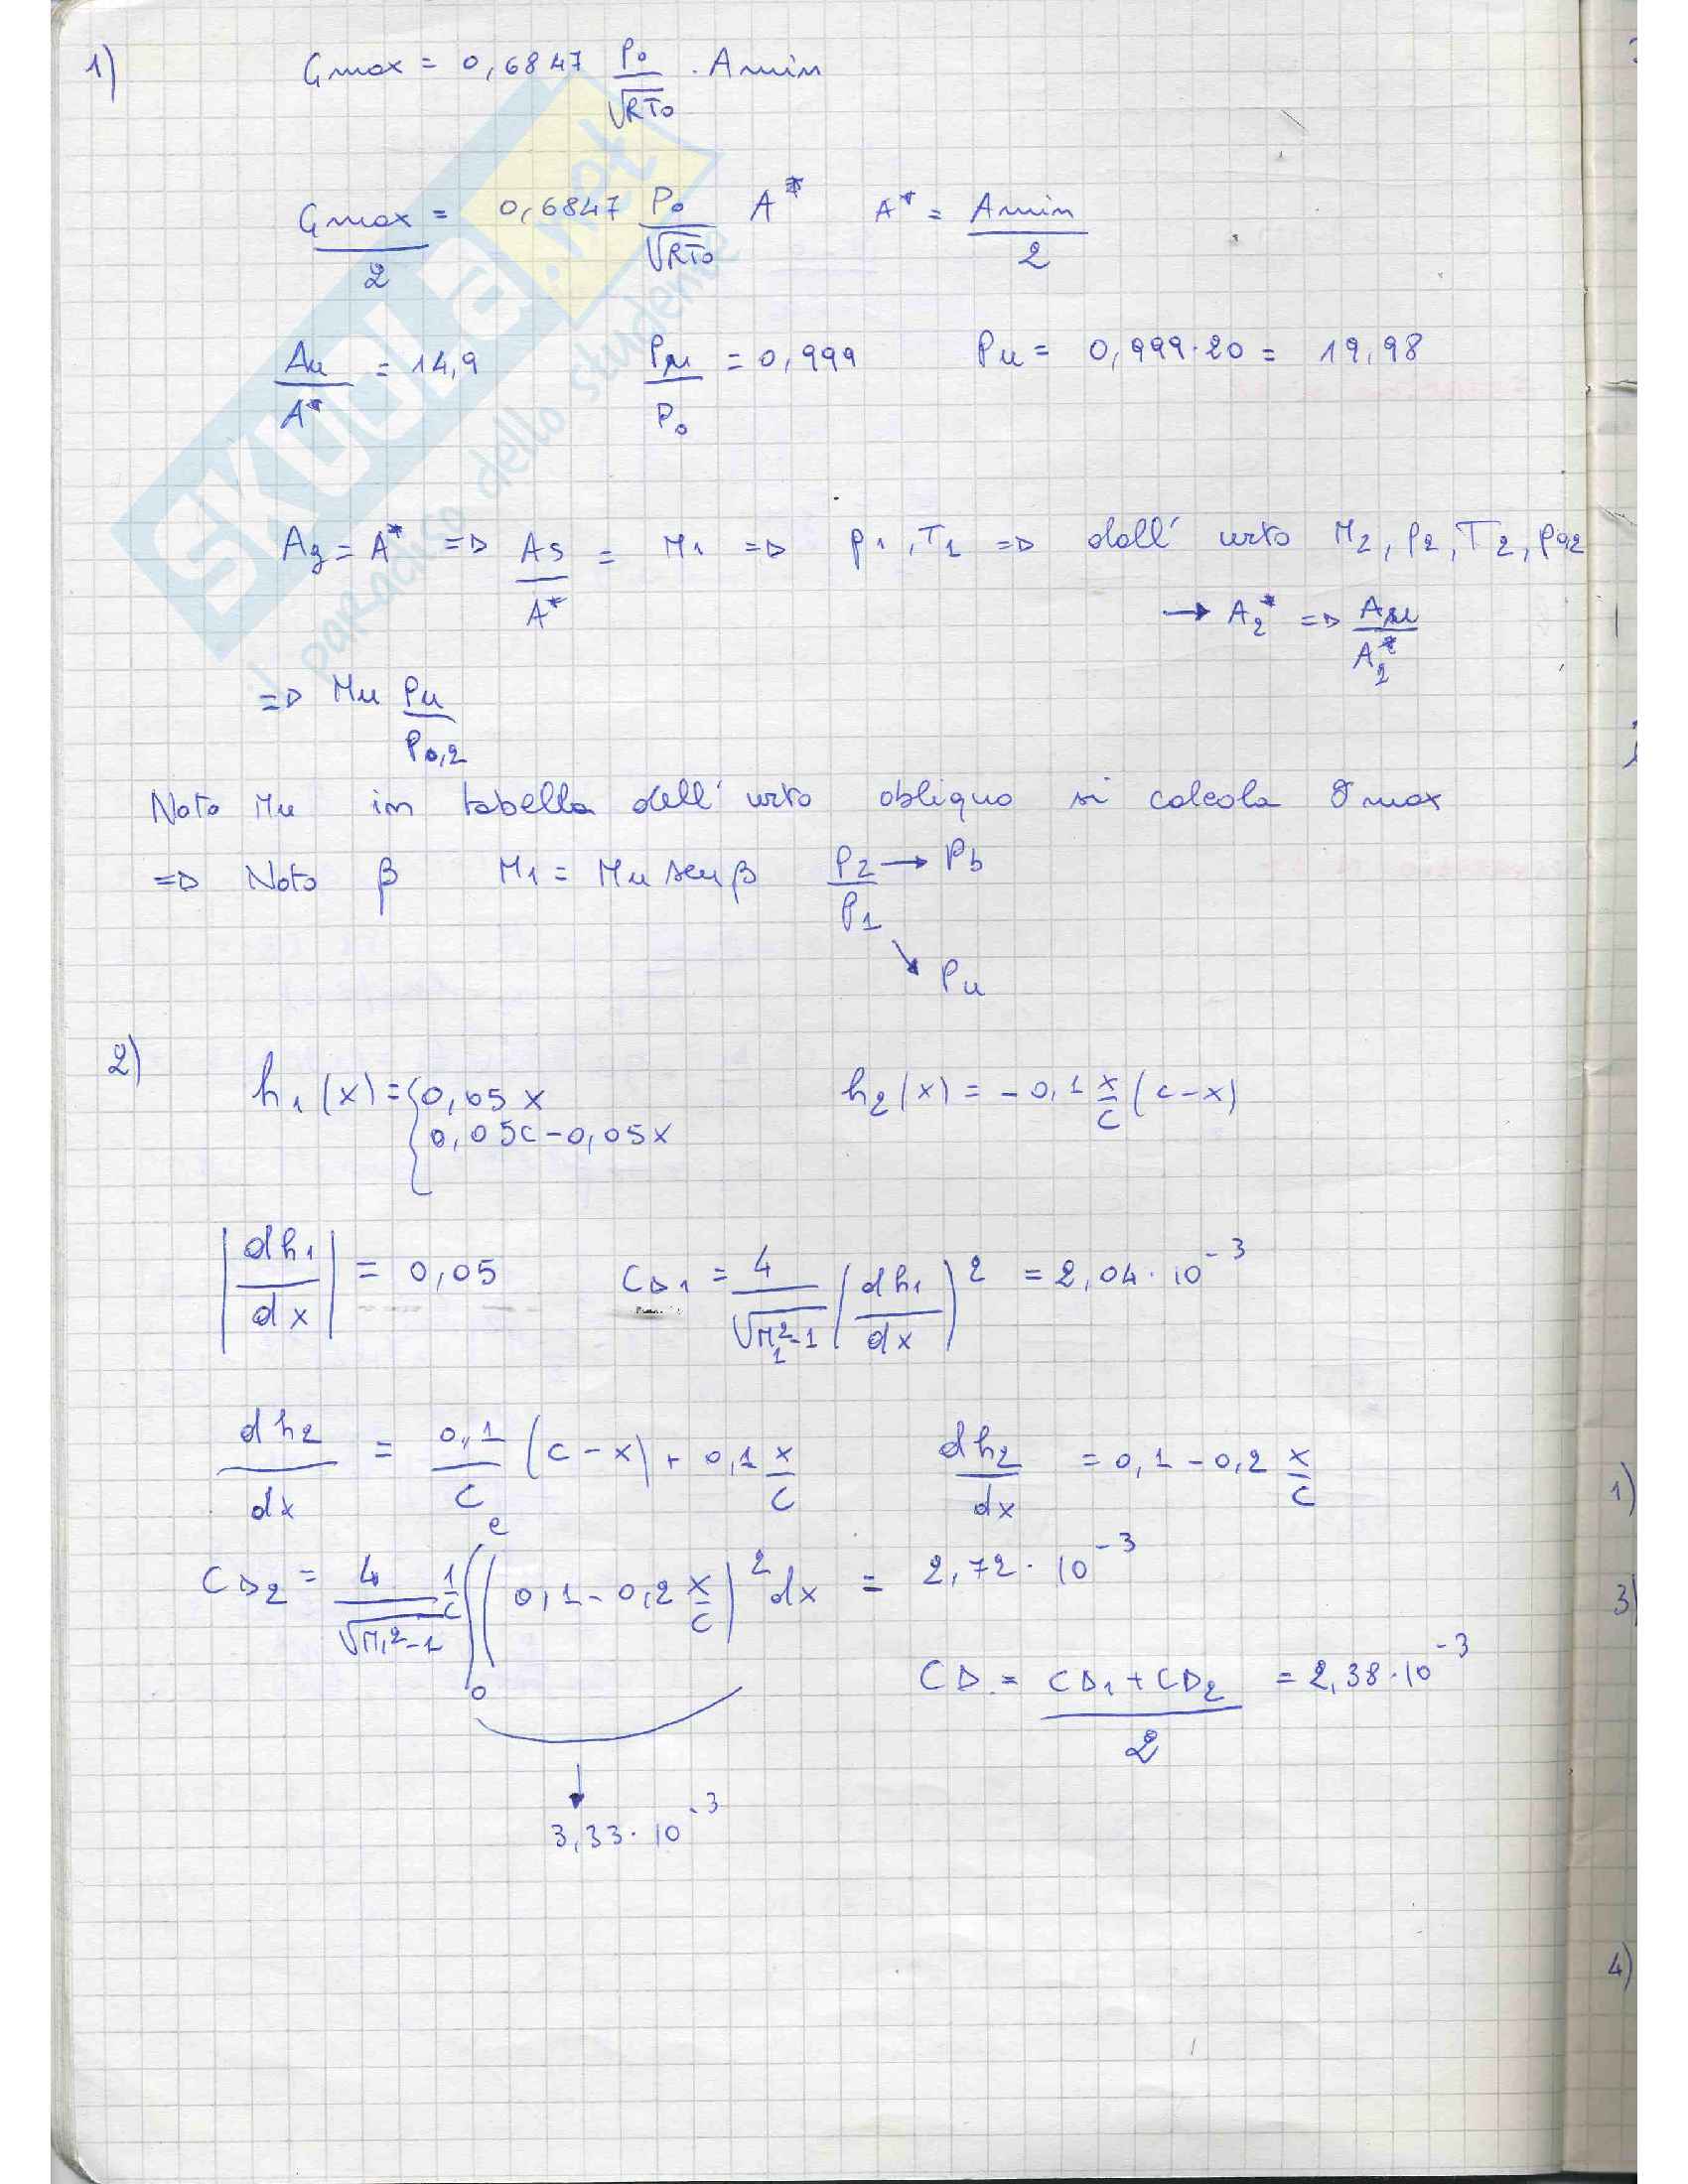 1) Gmax = 0,6847 Po/√RTo · Amin
Gmax/2 = 0,6847 Po/√RTo A* A* = Amin/2
Au/A* = 14,9 Pu/Po = 0,999 Pu = 0,999·20 = 19,98
Ag = A* => As/A* = M1 => p1, T1 => dall' urto M2, p2, T2, po2
→ A2* => Au/A2*
=> Mu Pu/Po,2
Noto Mu in tabella dell' urto obliquo si calcola δmax
=> Noto β M1 = Mu sen β P2/P1 → Pb
↘ Pu
2) h1(x) = { 0,05x h2(x) = -0,1 x/c (c-x)
0,05c-0,05x
|dh1/dx| = 0,05 CD1 = 4/√M1²-1 (dh1/dx)² = 2,04·10⁻³
dh2/dx = 0,1/c (c-x) + 0,1 x/c dh2/dx = 0,1-0,2 x/c
CD2 = 4/√M1²-1 1/c ∫₀ᶜ (0,1-0,2 x/c)² dx = 2,72·10⁻³
CD = CD1+CD2/2 = 2,38·10⁻³
↓
3,33·10⁻³
1)
3)
4)
SKUOLA.net
il paradiso dello studente